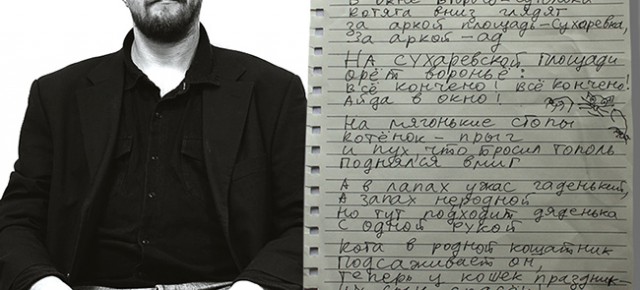 котята вниз глядят
за аркой площадь-Сухаревка,
за аркой-ад
НА СУХАРЕВСКОЙ площади
орёт вороньё:
ВСЁ КОНЧЕНО! ВСЁ КОНЧЕНО!
Айда в окно!
На мягонькие стопы
котёнок-прыг
и пух, что бросил тополь
поднялся вмиг
А в лапах ужас гаденький,
А запах неродной
Но тут подходит дяденька
С одной рукой
Кота в родной кошатник
Подсаживает он,
Теперь у кошек праздник-